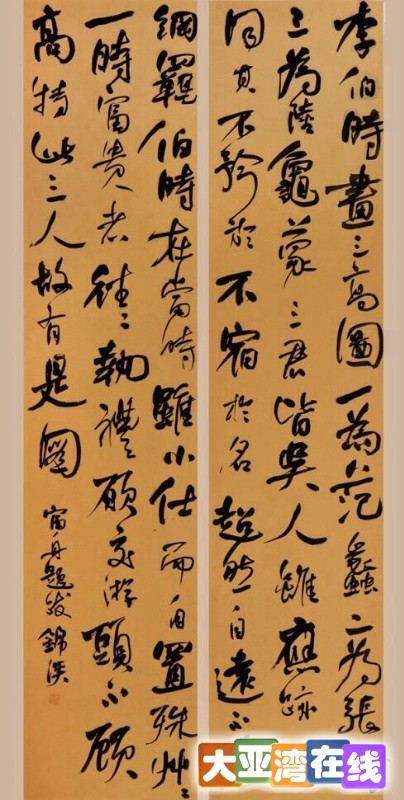 李伯時畫三高圖一為范蠡二為張
三為陸龜蒙三君皆吳人雖應跡
同其不矜於不宿於名超然自遠不
羈伯時在當時雖小仕而自置殊艸々
一時富貴者往々執禮願交游頭不顧
高特此三人故有是圖
題跋錦溪
大亚湾在线